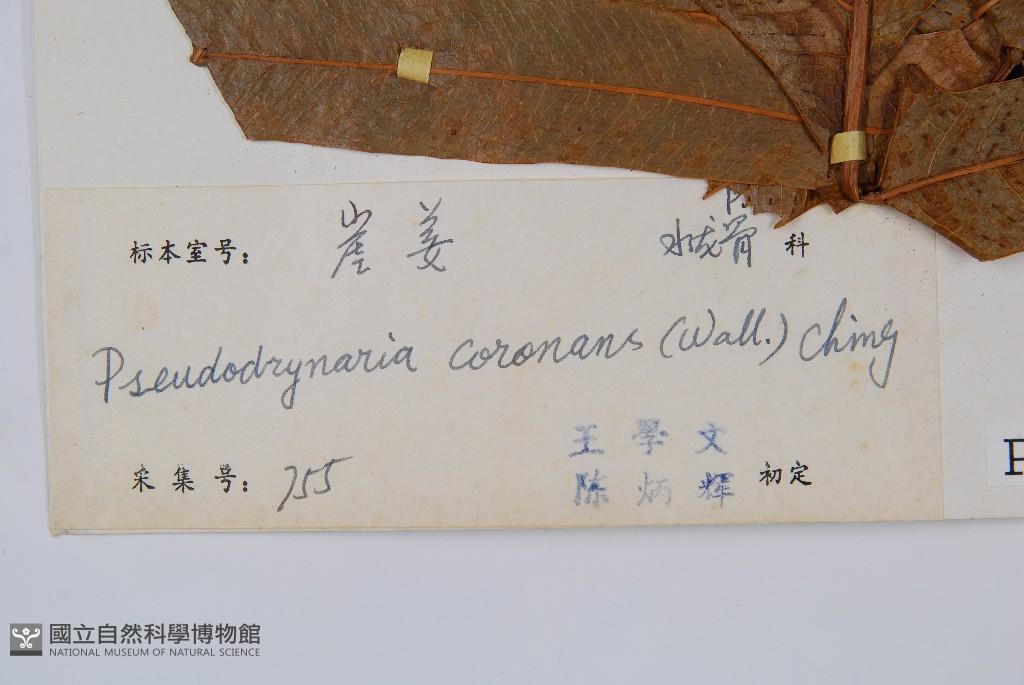 标本室号: 崖姜 水龙骨科
Pseudodrynaria coronans (Wall.) Ching
王學文
采集号: 755 陈炳輝 初定
國立自然科學博物館
NATIONAL MUSEUM OF NATURAL SCIENCE